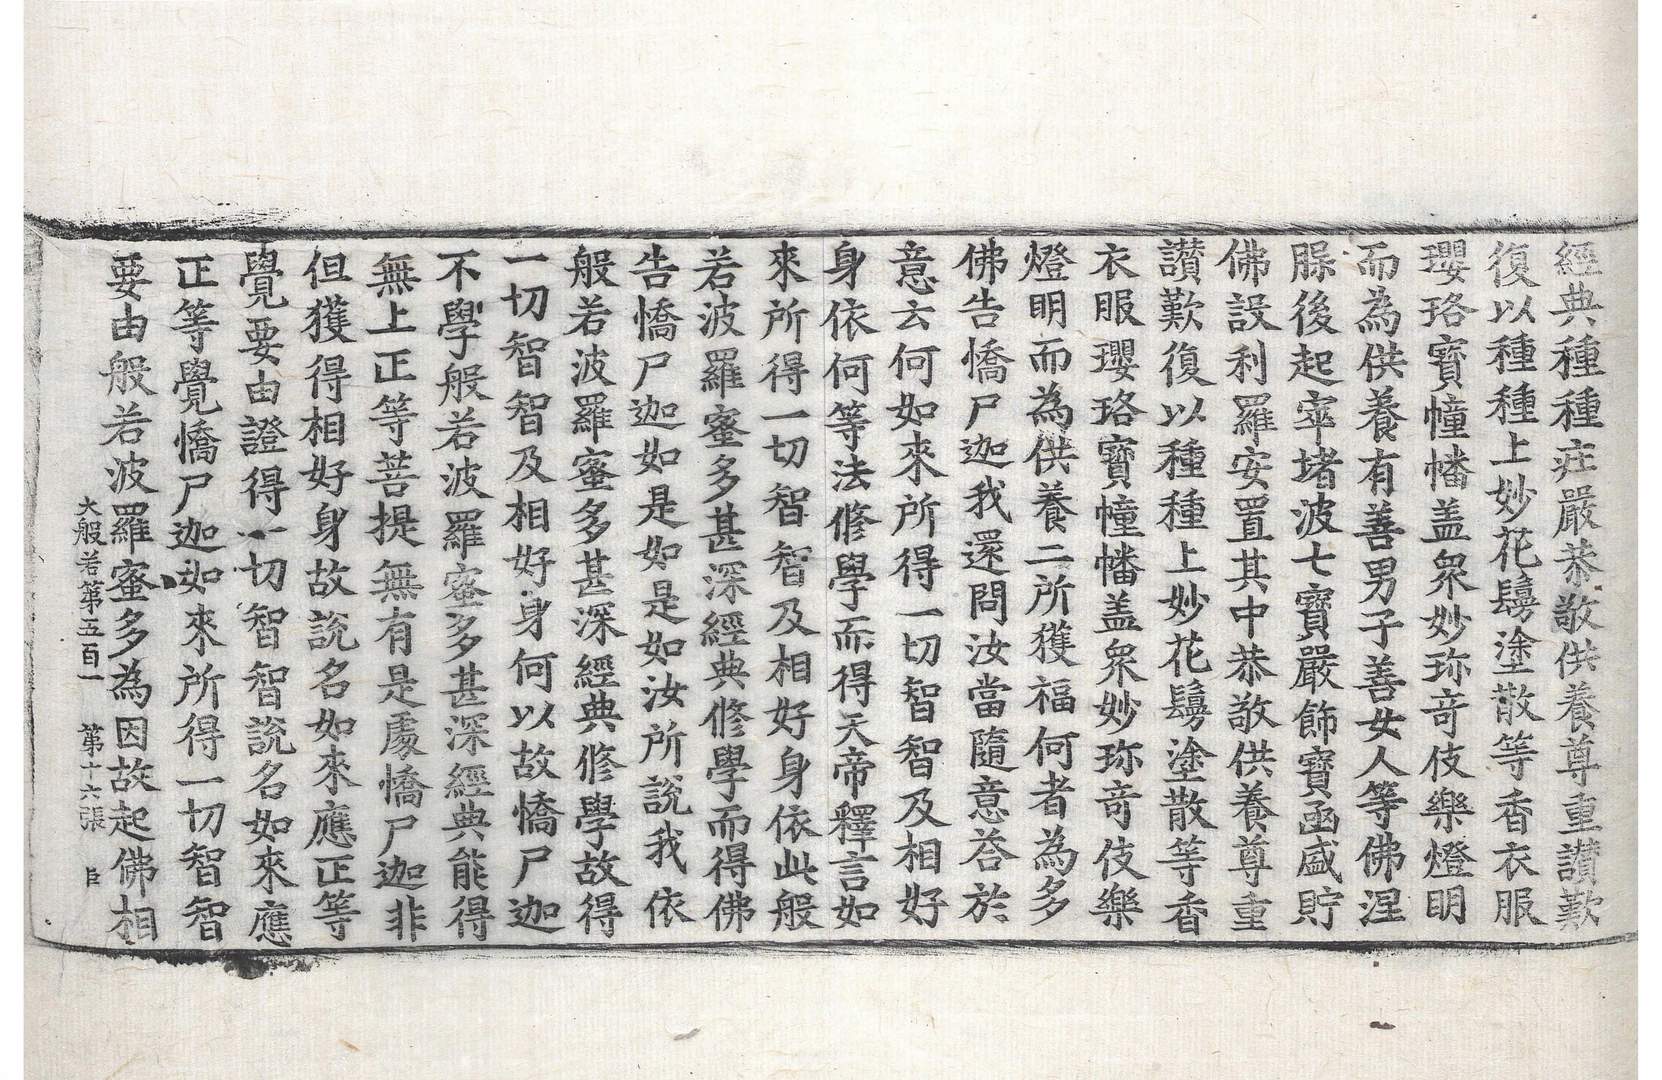 經典種種莊嚴恭敬供養尊重讃歎
復以種種上妙花鬘塗散等香衣服
瓔珞寶幢幡盖衆妙珎竒伎樂燈明
而為供養有善男子善女人等佛涅
𦖠後起窣堵波七寶嚴飾寶函盛貯
佛設利羅安置其中恭敬供養尊重
讃歎復以種種上妙花鬘塗散等香
衣服瓔珞寶幢幡盖衆妙珎竒伎樂
燈明而為供養二所獲福何者為多
佛告憍尸迦我還問汝當隨意荅於
意云何如來所得一切智智及相好
身依何等法修學而得天帝釋言如
來所得一切智智及相好身依此般
若波羅蜜多甚深經典修學而得佛
告憍尸迦如是如是如汝所說我依
般若波羅蜜多甚深經典修學故得
一切智智及相好身何以故憍尸迦
不學般若波羅蜜多甚深經典能得
無上正等菩提無有是處憍尸迦非
但獲得相好身故說名如來應正等
覺要由證得一切智智說名如來應
正等覺憍尸迦如來所得一切智智
要由般若波羅蜜多為因故起佛相
大般若第五百一 第十六張 臣